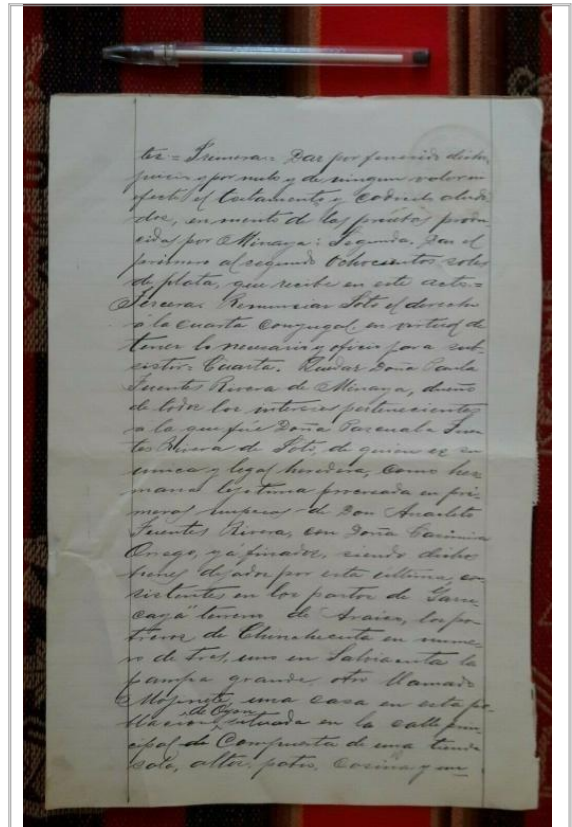 tes = Primera = Dar por fenecido dicho
juicio y por nulo y de ningun valor ni
efecto el testamento y codicilo aludi
dos, en mérito de las pruebas produ-
cidas por Minaya: Segunda. Dar el
primero al segundo Ochocientos soles
de plata, que recibe en este acto =
Tercera. Renunciar Soto el derecho
á la cuarta conyugal, en virtud de
tener lo necesario y oficio para sub-
sistir: Cuarta. Quedar Doña Paula
Fuentes Rivera de Minaya, dueña
de todos los intereses pertenecientes
a la que fué Doña Pascuala Fuen
tes Rivera de Soto, de quien es su
unica y legal heredera, como her
mana legitima procreada en pri-
meras nupcias de Don Anacleto
Fuentes Rivera, con Doña Casimira
Orrego, yá finados, siendo dichos
bienes dejados por esta última, con
sistentes en los pastos de
terreno de los po-
treros de en nume-
ro de tres, uno en la
pampa grande, otro llamado
una casa en esta po-
blacion de Oyon situada en la calle prin
cipal de Compuesta de una tienda
sala, altos, patio, cosina y un